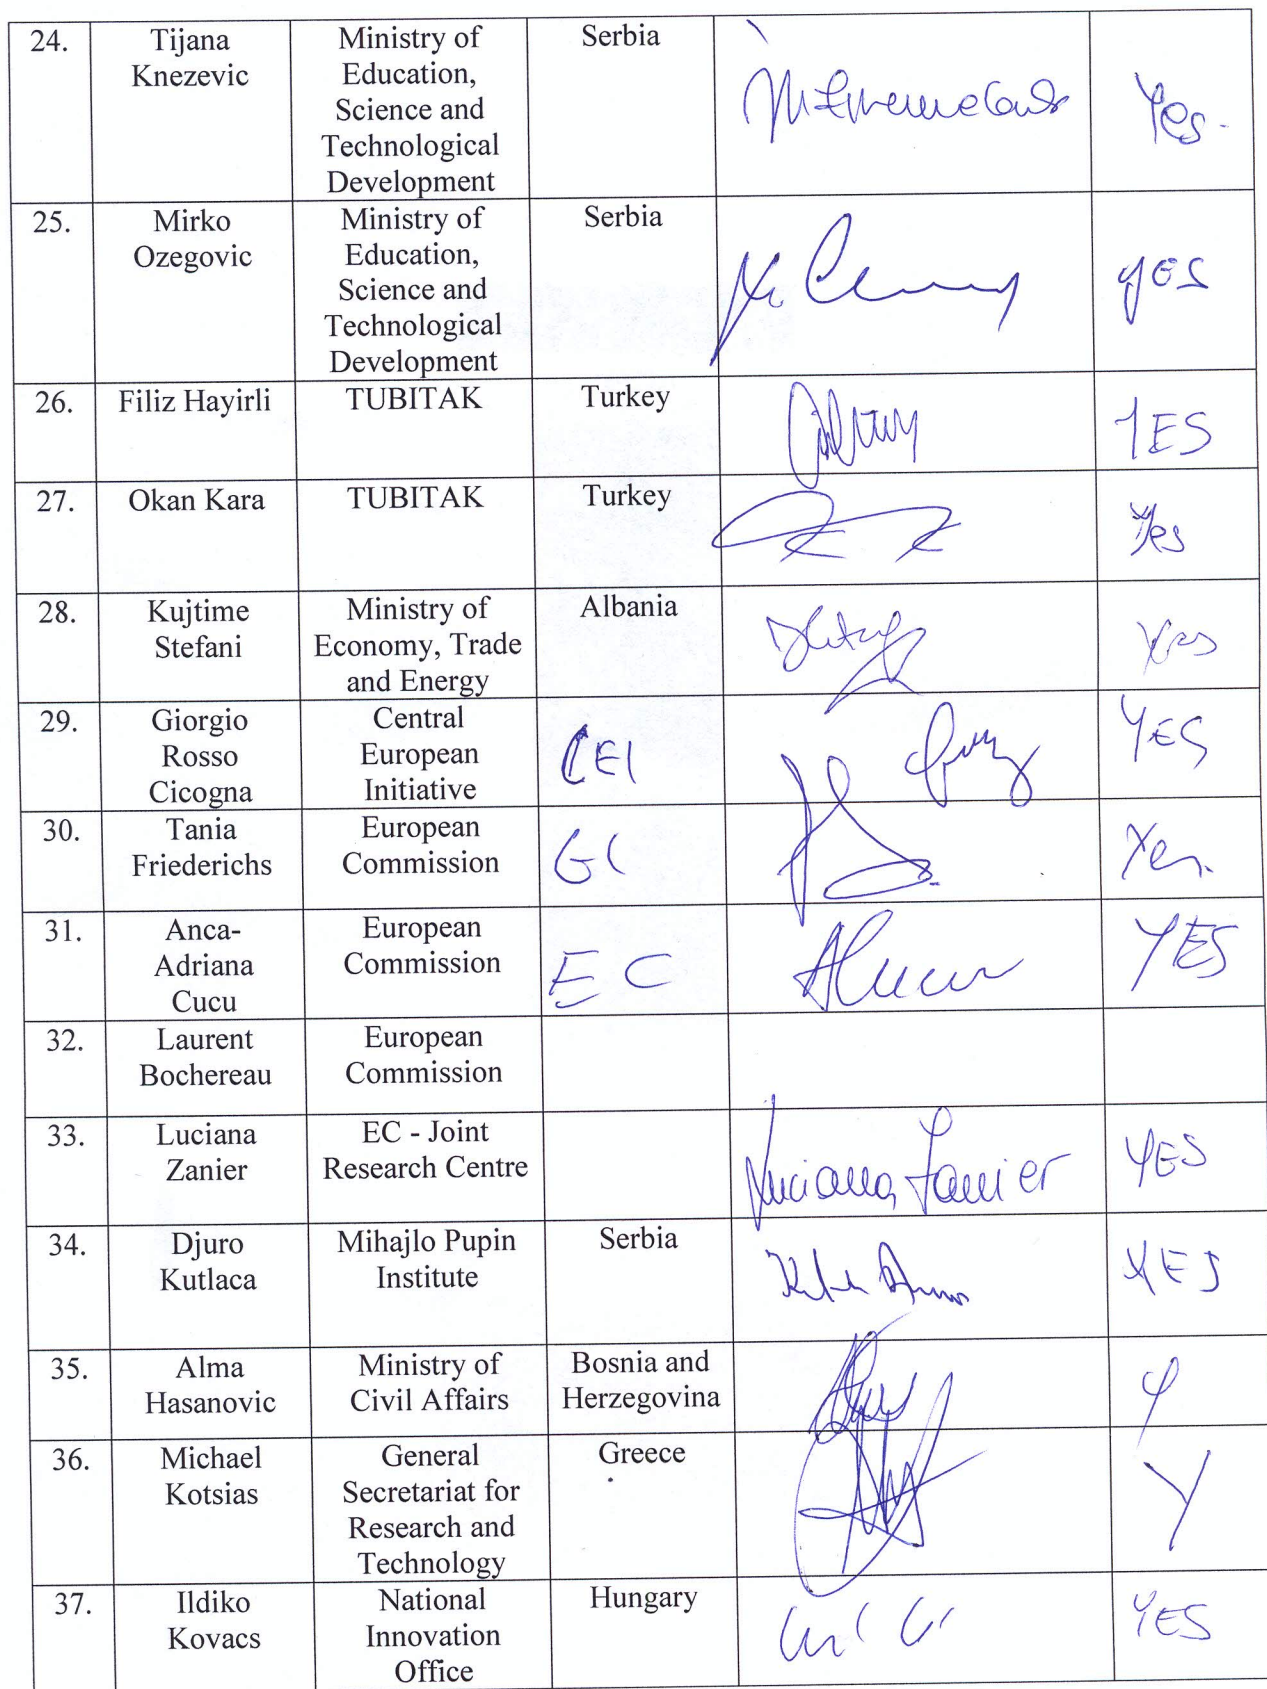 24.
Tijana
Knezevic
Ministry of
Education,
Science and
Technological
Development
Serbia
Yes.
25.
Mirko
Ozegovic
Ministry of
Education,
Science and
Technological
Development
Serbia
YES
26.
Filiz Hayirli
TUBITAK
Turkey
YES
27.
Okan Kara
TUBITAK
Turkey
Yes
28.
Kujtime
Stefani
Ministry of
Economy, Trade
and Energy
Albania
Yes
29.
Giorgio
Rosso
Cicogna
Central
European
Initiative
CEI
YES
30.
Tania
Friederichs
European
Commission
Yes.
31.
Anca-
Adriana
Cucu
European
Commission
EC
YES
32.
Laurent
Bochereau
European
Commission
33.
Luciana
Zanier
EC - Joint
Research Centre
Luciana Zanier
YES
34.
Djuro
Kutlaca
Mihajlo Pupin
Institute
Serbia
YES
35.
Alma
Hasanovic
Ministry of
Civil Affairs
Bosnia and
Herzegovina
Y
36.
Michael
Kotsias
General
Secretariat for
Research and
Technology
Greece
Y
37.
Ildiko
Kovacs
National
Innovation
Office
Hungary
YES